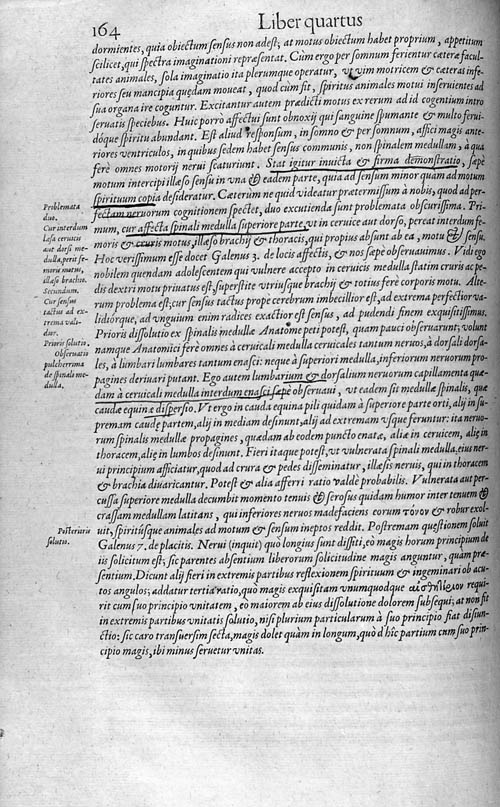 164
Liber quartus
dormientes, quia obiectum sensus non adest; at motus obiectum habet proprium, appetitum
scilicet, qui spectra imaginationi repræsentat. Cùm ergo per somnum ferientur cæteræ facul-
tates animales, sola imaginatio ita plerumque operatur, vt vim motricem & cæteras infe-
riores seu mancipia quædam moueat, quod cùm fit, spiritus animales motui inseruientes ad
sua organa ire coguntur. Excitantur autem prædicti motus ex rerum ad id cogentium intro
seruatis speciebus. Huic porrò affectui sunt obnoxij qui sanguine spumante & multo ferui-
dóque spiritu abundant. Est aliud responsum, in somno & per somnum, affici magis ante-
riores ventriculos, in quibus sedem habet sensus communis, non spinalem medullam, à qua
ferè omnes motorij nerui scaturiunt. Stat igitur inuicta & firma demonstratio, sæpè
motum intercipi illæso sensu in vna & eadem parte, quia ad sensum minor quàm ad motum
spirituum copia desideratur. Cæterum ne quid videatur prætermissum à nobis, quod ad per-
fectam neruorum cognitionem spectet, duo excutienda sunt problemata obscurissima. Pri-
mum, cur affecta spinali medulla superiore parte, vt in ceruice aut dorso, pereat interdum fe-
moris & cruris motus, illæso brachij & thoracis, qui propius absunt ab ea, motu & sensu.
Hoc verissimum esse docet Galenus 3. de locis affectis, & nos sæpè obseruauimus. Vidi ego
nobilem quendam adolescentem qui vulnere accepto in ceruicis medulla statim cruris ac pe-
dis dextri motu priuatus est, superstite vtriusque brachij & totius ferè corporis motu. Alte-
rum problema est; cur sensus tactus propè cerebrum imbecillior est, ad extrema perfectior va-
lidiórque, ad vnguium enim radices exactior est sensus, ad pudendi finem exquisitissimus.
Prioris dissolutio ex spinalis medullæ Anatome peti potest, quam pauci obseruarunt; volunt
namque Anatomici ferè omnes à ceruicali medulla ceruicales tantum neruos, à dorsali dorsa-
les, à lumbari lumbares tantum enasci: neque à superiori medulla, inferiorum neruorum pro-
pagines deriuari putant. Ego autem lumbarium & dorsalium neruorum capillamenta quæ-
dam à ceruicali medulla interdum enasci sæpè obseruaui, vt eadem sit medullæ spinalis, quæ
caudæ equinæ dispersio. Vt ergo in cauda equina pili quidam à superiore parte orti, alij in su-
premam caudæ partem, alij in mediam desinunt, alij ad extremam vsque feruntur: ita neruo-
rum spinalis medullæ propagines, quædam ab eodem puncto enatæ, aliæ in ceruicem, aliæ in
thoracem, aliæ in lumbos desinunt. Fieri itaque potest, vt vulnerata spinali medulla, eius ner-
ui principium afficiatur, quod ad crura & pedes disseminatur, illæsis neruis, qui in thoracem
& brachia diuaricantur. Potest & alia afferri ratio valdè probabilis. Vulnerata aut per-
cussa superiore medulla decumbit momento tenuis & serosus quidam humor inter tenuem &
crassam medullam latitans, qui inferiores neruos madefaciens eorum τόνον & robur exol-
uit, spiritúsque animales ad motum & sensum ineptos reddit. Postremam quæstionem soluit
Galenus 7. de placitis. Nerui (inquit) quò longius sunt dissiti, eò magis horum principium de
iis solicitum est; sic parentes absentium liberorum solicitudine magis anguntur, quàm præ-
sentium. Dicunt alij fieri in extremis partibus reflexionem spirituum & ingeminari ob acu-
tos angulos; addatur tertia ratio, quò magis exquisitam vnumquodque αἰσθητήριον requi-
rit cum suo principio vnitatem, eo maiorem ab eius dissolutione dolorem subsequi; at non fit
in extremis partibus vnitatis solutio, nisi plurium particularum à suo principio fiat disiun-
ctio: sic caro transuersim secta, magis dolet quàm in longum, quò d hîc partium cum suo prin-
cipio magis, ibi minus seruetur vnitas.
Problemata
duo.
Cur interdum
læsa ceruicis
aut dorsi me-
dulla, perit fe-
moris motus,
illæso brachio.
Secundum.
Cur sensus
tactus ad ex-
trema vali-
dior.
Prioris solutio.
Obseruatio
pulcherrima
de spinali me-
dulla.
Posterioris
solutio.